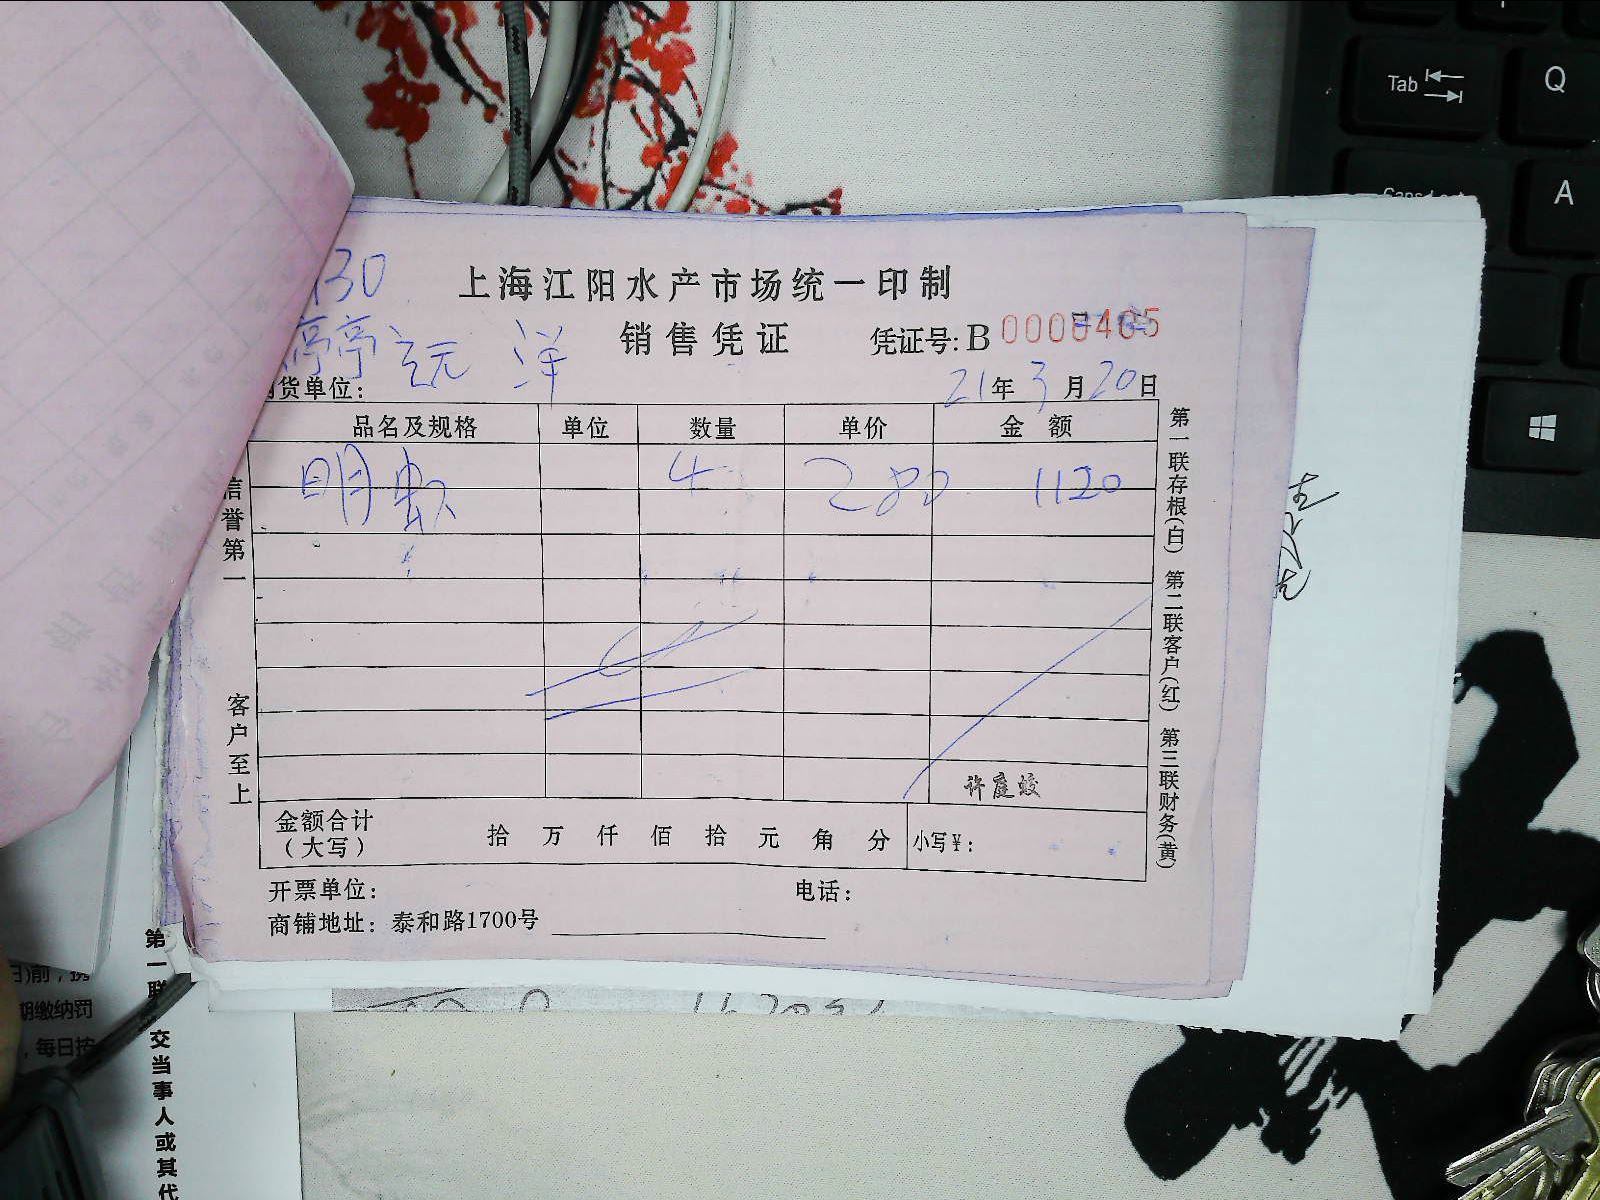 上海江阳水产市场统一印制
销售凭证
凭证号: B
130
婷婷
洋
货单位：
21年3月20日
品名及规格 单位 数量 单价 金额
明虾 4 280 1120
信誉第一
客户至上
第一联存根(白) 第二联客户(红) 第三联财务(黄)
许庭蛟
金额合计
（大写） 拾 万 仟 佰 拾 元 角 分 小写￥：
开票单位： 电话：
商铺地址：泰和路1700号
Tab
Q
A
期缴纳罚
，每日按
第一联
交当事人或其代